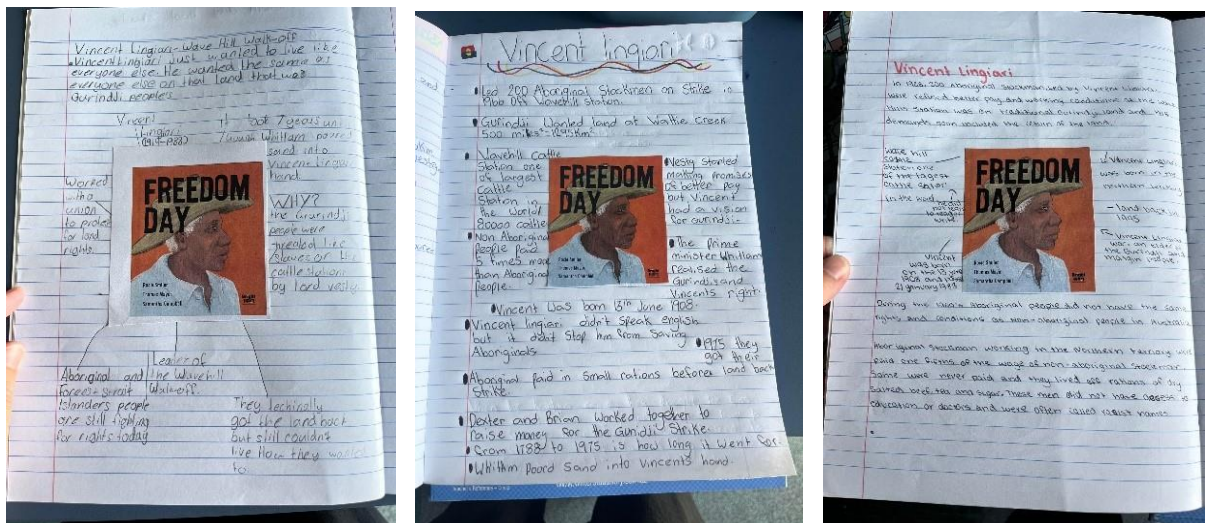 Vincent Lingiari-Wave Hill Walk-off
Vincent Lingiari Just wanted to live like
everyone else. He wanted the same as
everyone else on that land that was
Gurindji people's
Vincent
Lingiari
Worked
with a
union
to protest
for land
rights.
7 years
Whitlam poured
sand into
Vincent Lingiari
hand.
WHY?
the Gurindji
people were
treated like
slaves on the
cattle station
by lord vesty
FREEDOM
DAY
Rosie Smiler
Thomas Mayo
Samantha Campbell
Leader of
the Wavehill
Walk-off.
Aboriginal and
Torres strait
Islanders people
are still fighting
for rights today
They techinally
got the land back
but still couldn't
live How they wanted
to
Vincent lingiari
Led 200 Aboriginal Stockmen on Strike in
1966 Off Wavehill Station.
Gurindji Wanted land at Wattie Creek
500 miles²-1295Km²
Wavehill cattle
Station one
of largest
Cattle
Station in
the World!
80000 cattle
Non Aboriginal
People paid
5 times more
than Aboriginal
People.
FREEDOM
DAY
Rosie Smiler
Thomas Mayo
Samantha Campbell
Vesty Started
making promises
of better pay
but Vincent
had a vision
for gurindji
The Prime
minister Whitlam
realised the
Gurindji and
Vincents right.
Vincent Was born 13th June 1908.
Vincent lingiari didn't speak english
but it didnt Stop him from Saving
Aboriginals
1975 they
got their
land back
Aboriginal paid in Small rations before
Strike.
Dexter and Brian Worked together to
raise money for the Gurindji Strike.
from 1788 to 1975 is how long it went for.
Whitlm Pourd Sand into Vincents hand.
Vincent Lingiari
In 1966, 200 Aboriginal Stockman led by Vincent Lingiari
were refused better pay and working conditions at the wave
Hill Station was on traditional Gurindji land and his
demands soon included the return of the land.
wave hill
station one
of the
cattle
in the word
FREEDOM
DAY
Rosie Smiler
Thomas Mayo
Samantha Campbell
Vincent Lingiari
was born in the
northern territory
- land back in
1975
Vincent Lingiari
was an elder of
the Gurindji and
Vincent
was born
on the 13
1908 and
21 January 1988
During the aboriginal people did not have the same
rights and conditions as non-aboriginal people in Australia
Aboriginal Stockman working in the Northern territory were
paid one fifths of the wage of non-aboriginal stockman.
Some were never paid and they lived off rations of dry
Salted beef, tea and sugar. These men did not have access to
education or doctors and were often called racist names